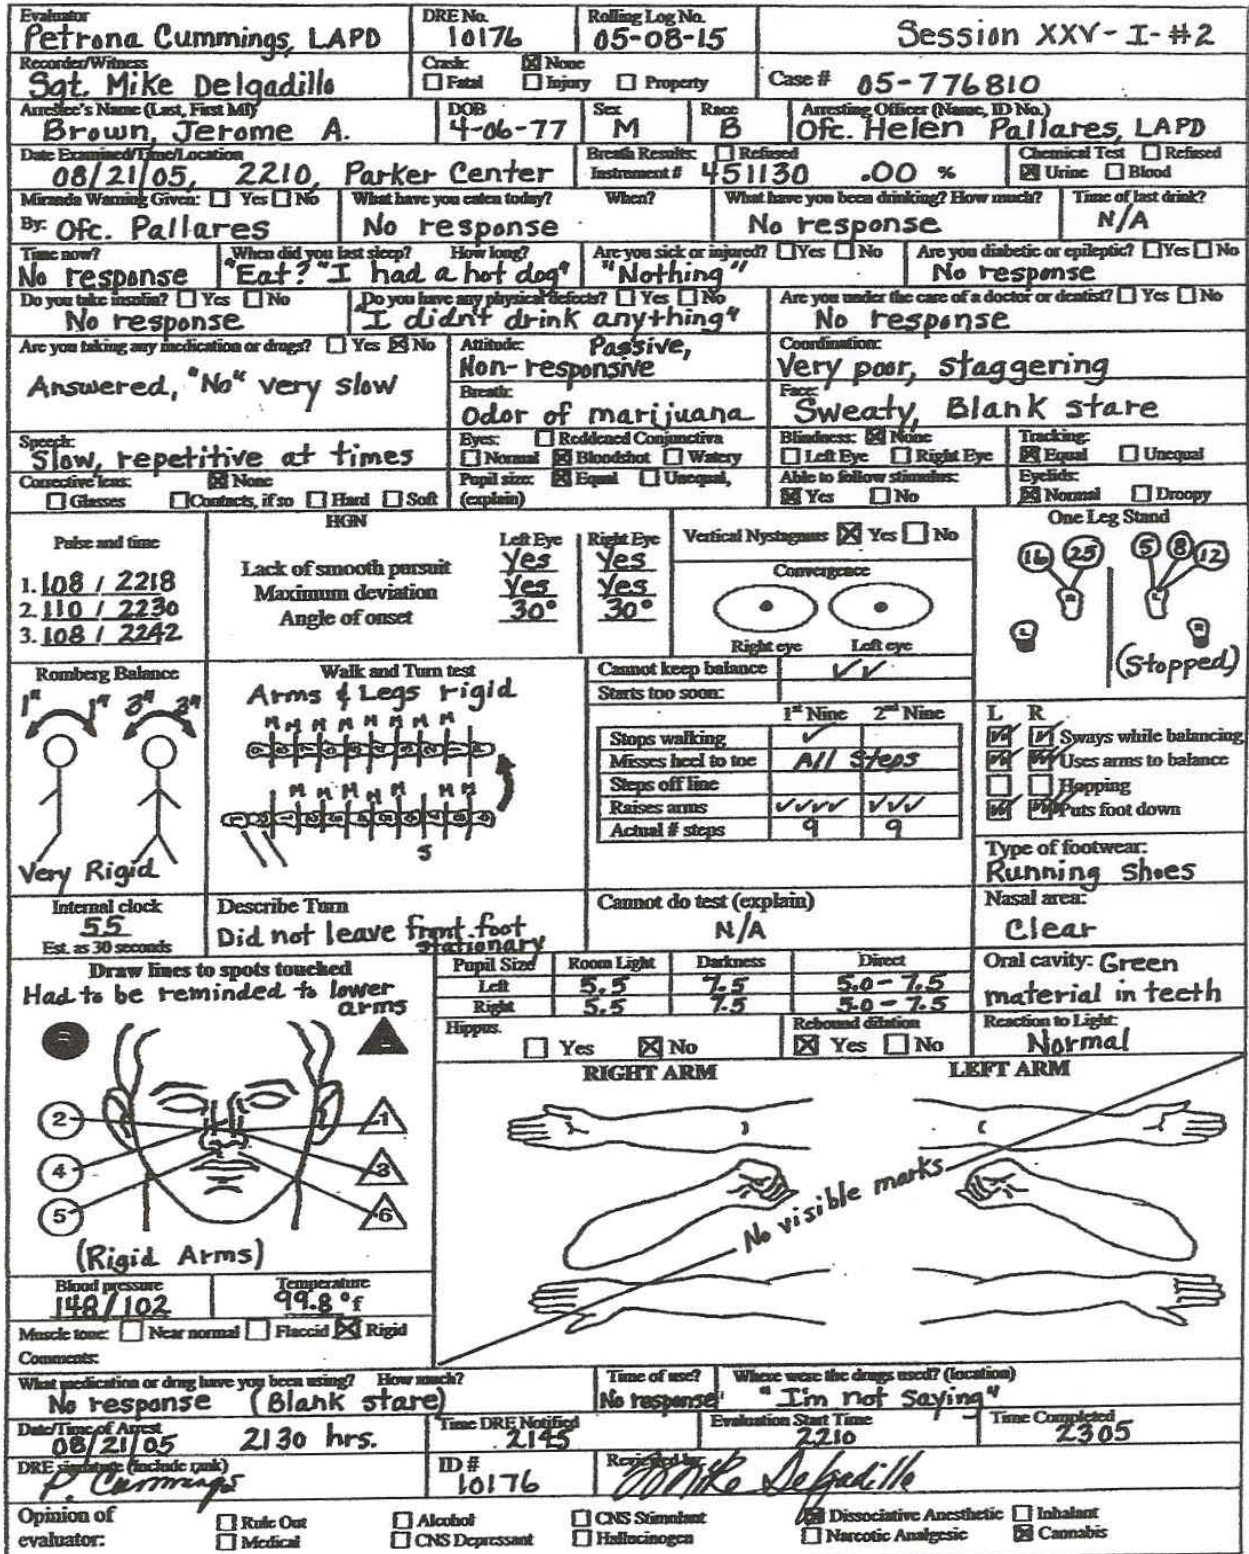 Evaluator
Petrona Cummings, LAPD
DRE No.
10176
Rolling Log No.
05-08-15
Session XXV-I-#2
Recorder/Witness
Sgt. Mike Delgadillo
Crash: None
Fatal Injury Property
Case # 05-776810
Arrestee's Name (Last, First MI)
Brown, Jerome A.
DOB
4-06-77
Sex
M
Race
B
Arresting Officer (Name, ID No.)
Ofc. Helen Pallares, LAPD
Date Examined/Time/Location
08/21/05, 2210, Parker Center
Breath Results: Refused
Instrument # 451130 .00 %
Chemical Test Refused
Urine Blood
Miranda Warning Given: Yes No
By: Ofc. Pallares
What have you eaten today? When?
No response
What have you been drinking? How much?
No response
Time of last drink?
N/A
Time now?
No response
When did you last sleep? How long?
"Eat?" "I had a hot dog"
Are you sick or injured? Yes No
"Nothing"
Are you diabetic or epileptic? Yes No
No response
Do you take insulin? Yes No
No response
Do you have any physical defects? Yes No
"I didn't drink anything"
Are you under the care of a doctor or dentist? Yes No
No response
Are you taking any medication or drugs? Yes No
Answered, "No" very slow
Attitude: Passive,
Non-responsive
Coordination:
Very poor, staggering
Breath:
Odor of marijuana
Face:
Sweaty, Blank stare
Speech:
Slow, repetitive at times
Eyes: Reddened Conjunctiva
Normal Bloodshot Watery
Blindness: None
Left Eye Right Eye
Tracking:
Equal Unequal
Corrective lens: None
Glasses Contacts, if so Hard Soft
Pupil size: Equal Unequal,
(explain)
Able to follow stimulus:
Yes No
Eyelids:
Normal Droopy
Pulse and time
1. 108 / 2218
2. 110 / 2230
3. 108 / 2242
HGN
Left Eye Right Eye
Lack of smooth pursuit Yes Yes
Maximum deviation Yes Yes
Angle of onset 30° 30°
Vertical Nystagmus Yes No
Convergence
Right eye Left eye
One Leg Stand
16 25 5 8 12
L R L R
(Stopped)
Romberg Balance
1" 1" 3" 3"
Very Rigid
Walk and Turn test
Arms & Legs rigid
M M M M M M M M
M M M M M M M
S
Cannot keep balance ✓✓
Starts too soon:
1st Nine 2nd Nine
Stops walking ✓
Misses heel to toe All Steps
Steps off line
Raises arms ✓✓✓✓ ✓✓✓
Actual # steps 9 9
L R
Sways while balancing
Uses arms to balance
Hopping
Puts foot down
Type of footwear:
Running shoes
Internal clock
55
Est. as 30 seconds
Describe Turn
Did not leave front foot
stationary
Cannot do test (explain)
N/A
Nasal area:
Clear
Draw lines to spots touched
Had to be reminded to lower
arms
2 1
4 3
5 6
(Rigid Arms)
Pupil Size Room Light Darkness Direct
Left 5.5 7.5 5.0 - 7.5
Right 5.5 7.5 5.0 - 7.5
Oral cavity: Green
material in teeth
Hippus.
Yes No
Rebound dilation
Yes No
Reaction to Light:
Normal
RIGHT ARM LEFT ARM
No visible marks
Blood pressure
148/102
Temperature
99.8 °f
Muscle tone: Near normal Flaccid Rigid
Comments:
What medication or drug have you been using? How much?
No response (Blank stare)
Time of use?
No response
Where were the drugs used? (location)
"I'm not saying"
Date/Time of Arrest
08/21/05 2130 hrs.
Time DRE Notified
2145
Evaluation Start Time
2210
Time Completed
2305
DRE signature (include rank)
P. Cummings
ID #
10176
Reviewed by:
Mike Delgadillo
Opinion of
evaluator:
Rule Out Alcohol CNS Stimulant Dissociative Anesthetic Inhalant
Medical CNS Depressant Hallucinogen Narcotic Analgesic Cannabis